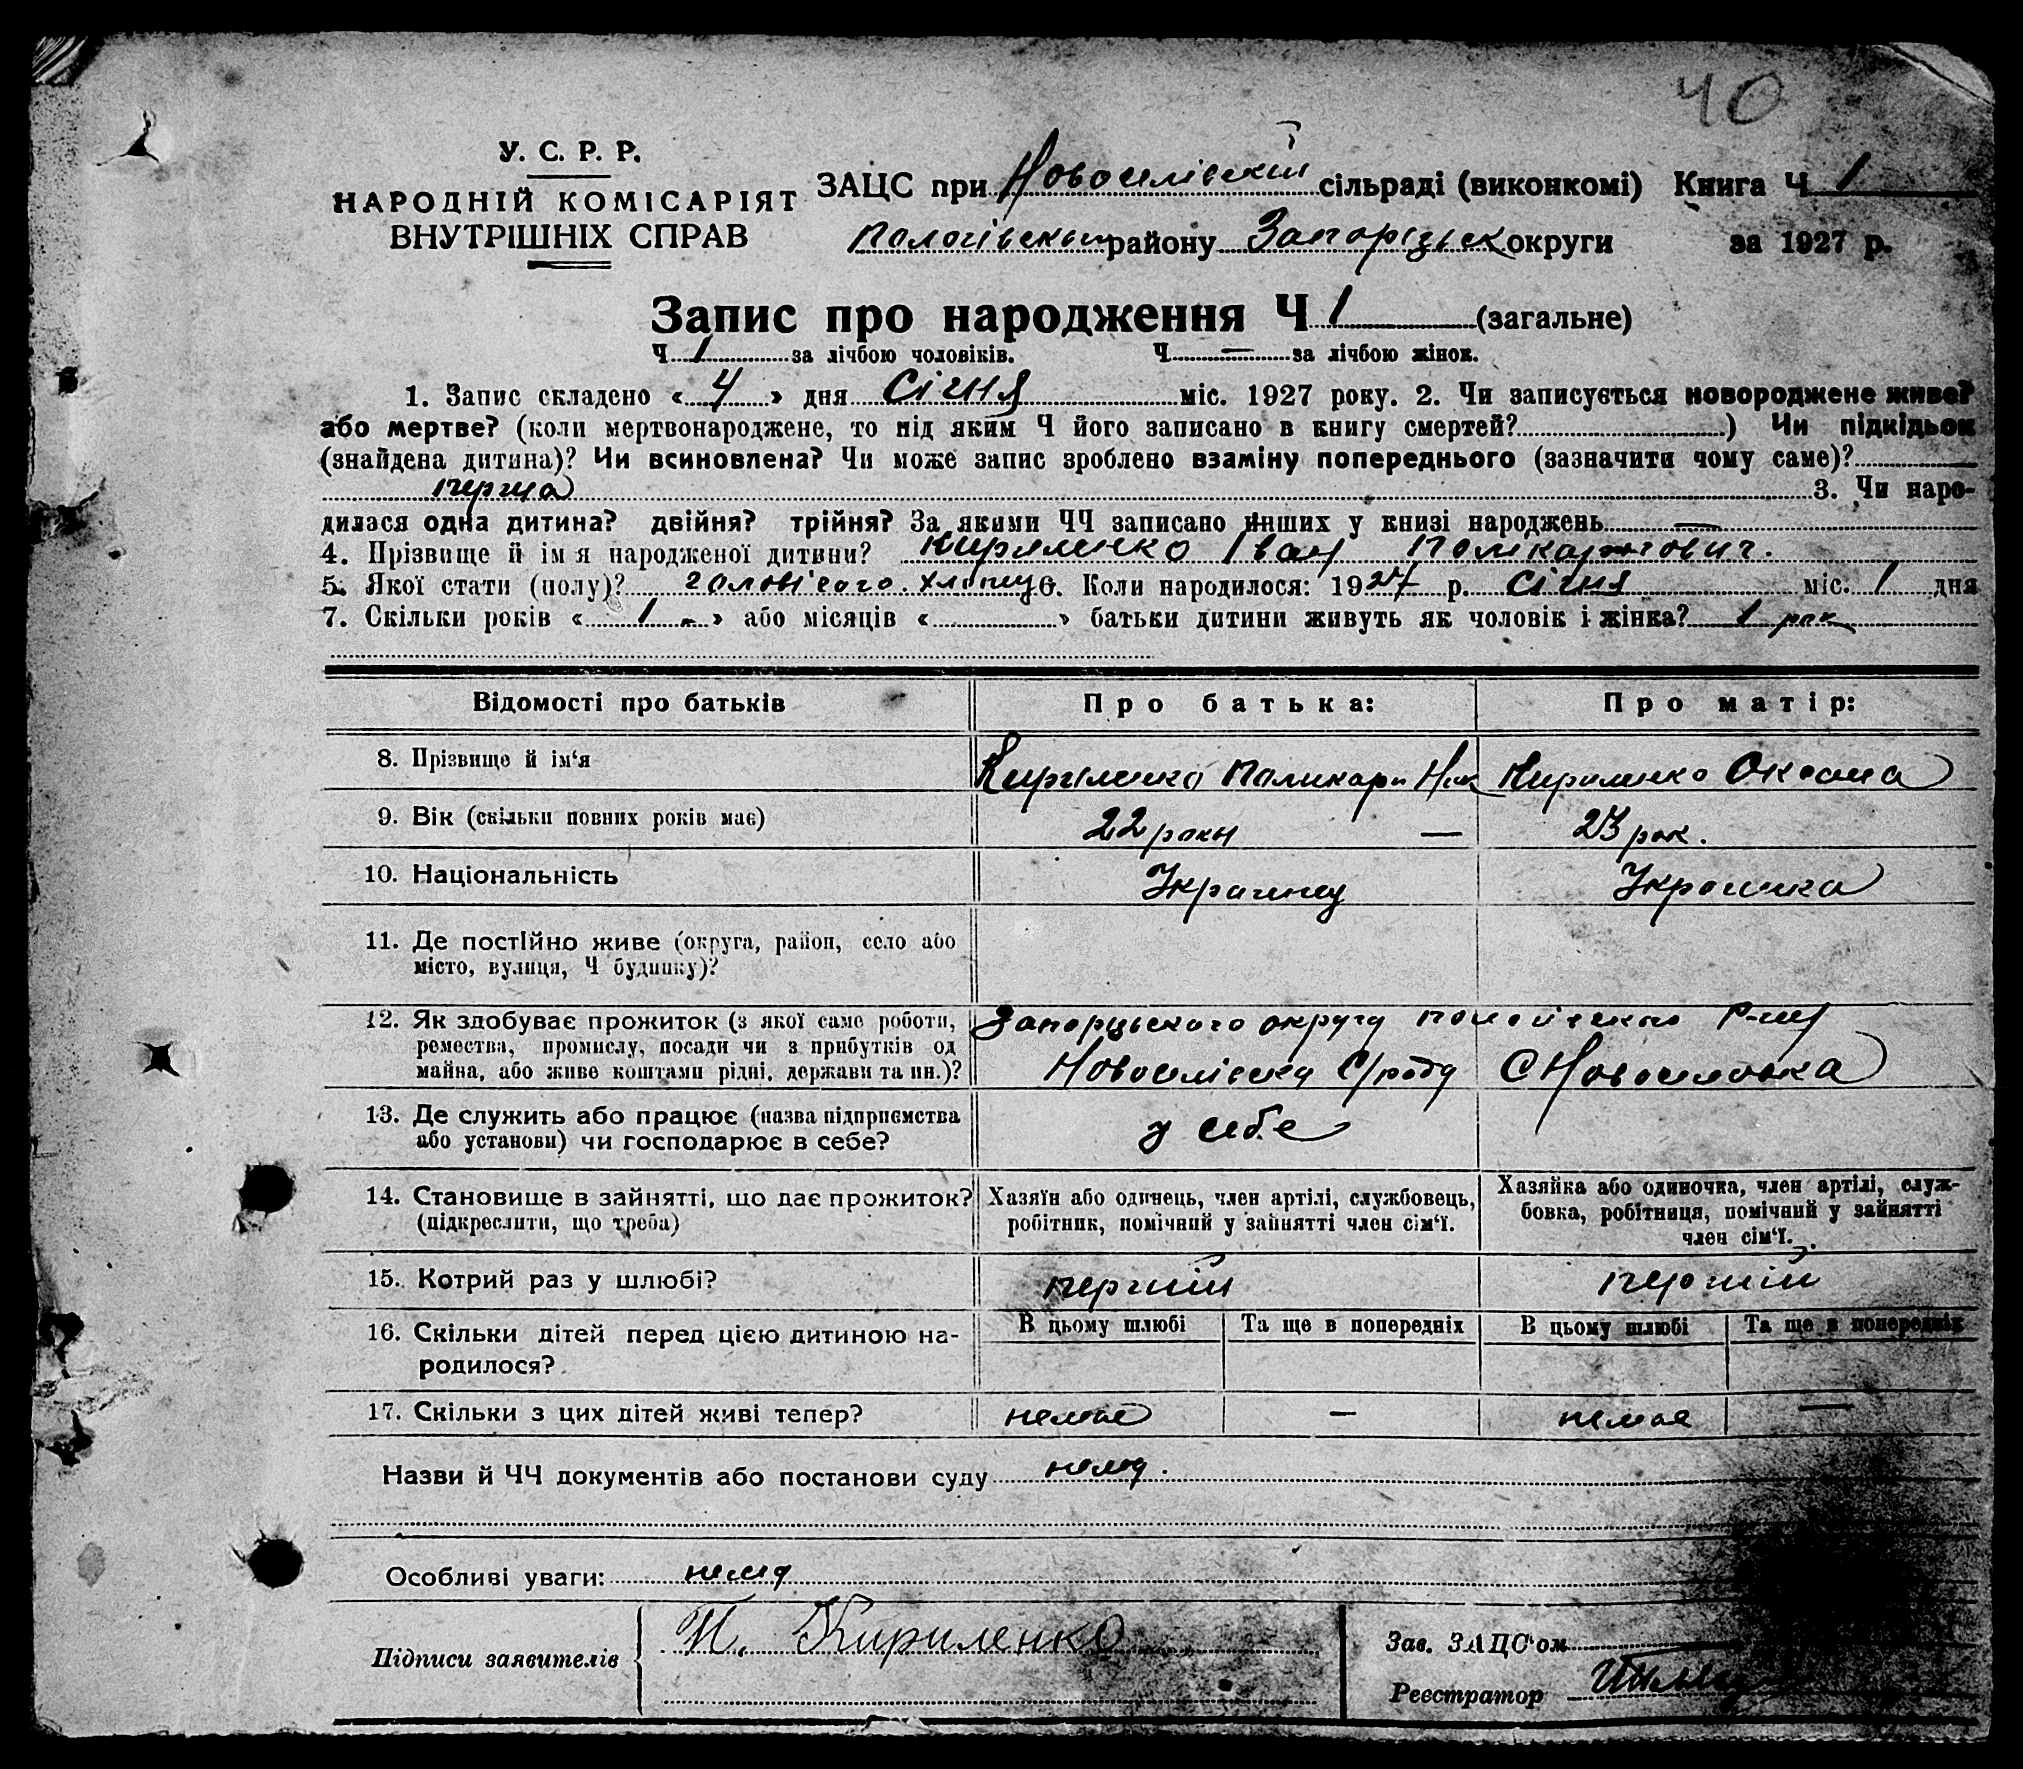 40
У. С. Р. Р.
НАРОДНІЙ КОМІСАРІЯТ
ВНУТРІШНІХ СПРАВ
ЗАЦС при Новоселівській сільраді (виконкомі) Книга Ч 1
Пологівським району Запорізьк округи за 1927 р.
Запис про народження Ч 1 (загальне)
Ч 1 за лічбою чоловіків. Ч — за лічбою жінок.
1. Запис складено « 4 » дня Січня міс. 1927 року. 2. Чи записується новороджене живе?
або мертве? (коли мертвонароджене, то під яким Ч його записано в книгу смертей? ) Чи підкідьок
(знайдена дитина)? Чи всиновлена? Чи може запис зроблено взаміну попереднього (зазначити чому саме)? —
перша 3. Чи наро-
дилася одна дитина? двійня? трійня? За якими ЧЧ записано инших у книзі народжень —
4. Прізвище й ім я народженої дитини? Кириленко Іван Поликарпович.
5. Якої стати (полу)? чоловічого. хлопец 6. Коли народилося: 1927 р. Січня міс. 1 дня
7. Скільки років « 1 » або місяців « » батьки дитини живуть як чоловік і жінка? 1 рок
Відомості про батьків Про батька: Про матір:
8. Прізвище й ім‘я Кириленко Поликарп Ник Кириленко Оксана
9. Вік (скільки повних років має) 22 роки — 23 рок.
10. Національність Українец Українка
11. Де постійно живе (округа, район, село або
місто, вулиця, Ч будинку)?
12. Як здобуває прожиток (з якої саме роботи,
ремества, промислу, посади чи з прибутків од
майна, або живе коштами рідні, держави та ин.)?
Запорізьского округу Р-ну
Новоселівску С/раду С Новоселовка
13. Де служить або працює (назва підприємства
або установи) чи господарює в себе?
у себе
14. Становище в зайнятті, що дає прожиток?
(підкреслити, що треба)
Хазяїн або одинець, член артілі, службовець,
робітник, помічний у зайнятті член сім‘ї.
Хазяйка або одиночка, член артілі, служ-
бовка, робітниця, помічний у зайнятті
член сім‘ї.
15. Котрий раз у шлюбі? перший перший
16. Скільки дітей перед цією дитиною на-
родилося?
В цьому шлюбі Та ще в попередніх В цьому шлюбі Та ще в попередніх
17. Скільки з цих дітей живі тепер? немає — немає —
Назви й ЧЧ документів або постанови суду нема.
Особливі уваги: нема
Підписи заявителів П. Кириленко
Зав. ЗАЦС‘ом
Реєстратор